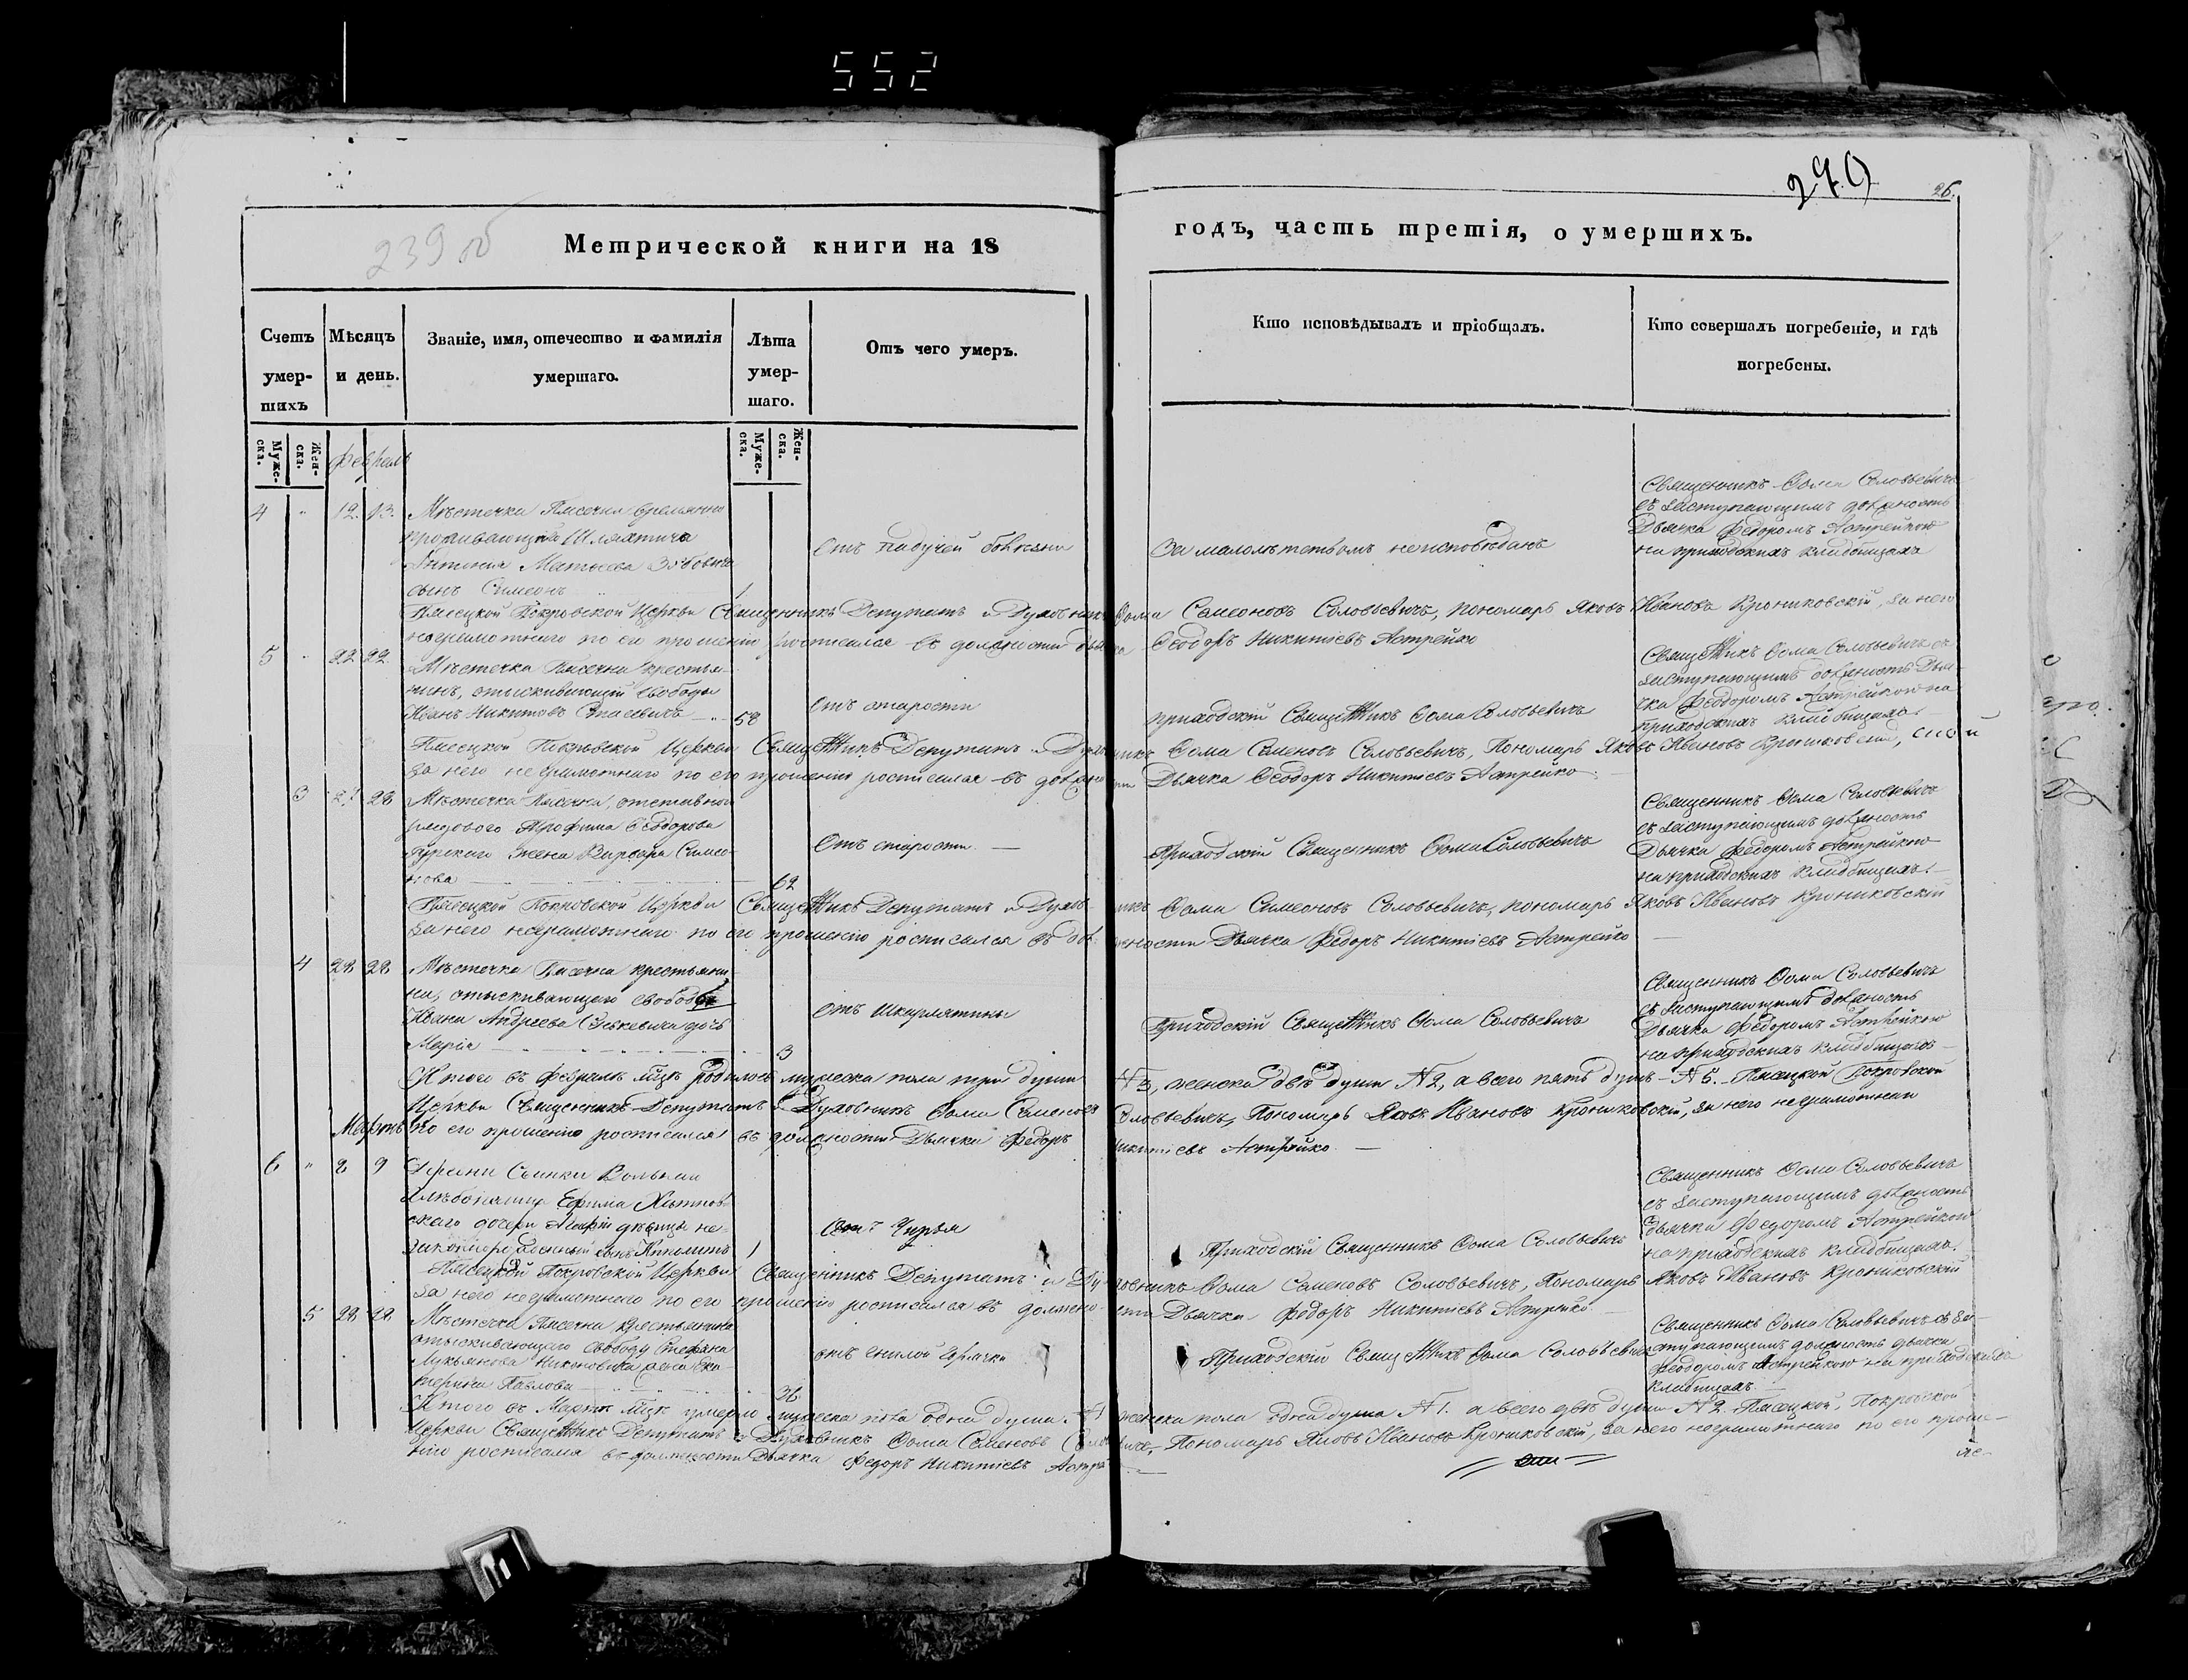 552
290
26.
239 об
Метрической книги на 18
годъ, часть третія, о умершихъ.
Счетъ умер-шихъ
Мѣсяцъ и день.
Званіе, имя, отечество и фамилія умершаго.
Лѣта умер-шаго.
Отъ чего умеръ.
Кто исповѣдывалъ и пріобщалъ.
Кто совершалъ погребеніе, и гдѣ погребены.
Муже-ска.
Жен-ска.
Муже-ска.
Жен-ска.
Февраль
4 " 12. 13.
Мѣстечка Пясечна временно
проживающаго Шляхтича
Антонія Матвѣева
сынъ Симеонъ
1
Отъ падучей болѣзни
За малолѣтствомъ неисповѣданъ
Священникъ Ѳома Соловьевичъ
съ заступающимъ должность
Дьячка Федоромъ Астрейкою
на приходскихъ кладбищахъ
Пясецкой Покровской Церкви Священникъ Депутатъ и Духовникъ Ѳома Семеоновъ Соловьевичъ, пономарь Яковъ Ивановъ Крониковскій, за него
неграмотнаго по его прошенію росписался въ должности дьячка Ѳеодоръ Никитіевъ Астрейко
5 " 22 22
Мѣстечка Пясечна крестья-
нинъ, отыскивающій свободы
Иванъ Никитовъ
58
Отъ старости
приходскій Священникъ Ѳома Соловьевичъ
Священникъ Ѳома Соловьевичъ съ
заступающимъ должность Дья-
чка Ѳедоромъ Астрейкою на
приходскихъ кладбищахъ.
Пясецкой Покровской Церкви Священникъ Депутатъ и Духовникъ Ѳома Семеновъ Соловьевичъ, Пономарь Яковъ Ивановъ Крониковскій,
за него неграмотнаго по его прошенію росписался въ должности Дьячка Ѳеодоръ Никитіевъ Астрейко.
3 27 28
Мѣстечка Пясечна, отставного
рядового Трофима Ѳеодорова
жена Варвара Симео-
нова
62
Отъ старости.
Приходскій Священникъ Ѳома Соловьевичъ
Священникъ Ѳома Соловьевичъ
съ заступающимъ должность
Дьячка Федоромъ Астрейкою
на приходскихъ кладбищахъ.
Пясецкой Покровской Церкви Священникъ Депутатъ и Духовникъ Ѳома Симеоновъ Соловьевичъ, пономарь Яковъ Ивановъ Крониковскій
за него неграмотнаго по его прошенію росписался въ должности Дьячка Федоръ Никитіевъ Астрейко
4 28 28
Мѣстечка Пясечна крестьяни-
на, отыскивающаго свободы
Ивана Андреева дочь
Марія
3
Отъ шкарлятины
Приходскій Священникъ Ѳома Соловьевичъ
Священникъ Ѳома Соловьевичъ
съ заступающимъ должность
Дьячка Федоромъ Астрейкою
на приходскихъ кладбищахъ
Итого въ февралѣ мцѣ родилось мужеска пола три души №3, женска двѣ души №2, а всего пять душъ - №5. - Пясецкой Покровской
Церкви Священникъ Депутатъ и Духовникъ Ѳома Семеновъ Соловьевичъ, Пономарь Яковъ Ивановъ Крониковскій, за него неграмотнаго
по его прошенію росписался въ должности Дьячка Федоръ Никитіевъ Астрейко.
Мартъ
6 " 8 9
Вольнаго
хлѣбопашца Ефима
дочери Агафіи дѣвицы не-
законнорожденный сынъ Ипполитъ
1
Отъ чирья
Приходскій Священникъ Ѳома Соловьевичъ
Священникъ Ѳома Соловьевичъ
съ заступающимъ должность
дьячка Федоромъ Астрейкою
на приходскихъ кладбищахъ.
Пясецкой Покровской Церкви Священникъ Депутатъ и Духовникъ Ѳома Семеновъ Соловьевичъ, Пономарь Яковъ Ивановъ Крониковскій
за него неграмотнаго по его прошенію росписался въ должности Дьячка Федоръ Никитіевъ Астрейко.
5 28 28
Мѣстечка Пясечна крестьянина
отыскивающаго свободу Стефана
Лукьянова жена Ека-
терина Павлова
36
отъ гнилой горячки
Приходскій Священникъ Ѳома Соловьевичъ
Священникъ Ѳома Соловьевичъ съ за-
ступающимъ должность дьячка
Феодоромъ Астрейкою на приходскихъ
кладбищахъ.
Итого въ Мартѣ мцѣ умерло мужеска пола одна душа №1 женска пола одна душа №1. а всего двѣ души №2. Пясецкой, Покровской
Церкви Священникъ Депутатъ и Духовникъ Ѳома Семеновъ Соловьевичъ, Пономарь Яковъ Ивановъ Крониковскій, за него неграмотнаго по его проше-
нію росписался въ должности Дьячка Федоръ Никитіевъ Астрейко